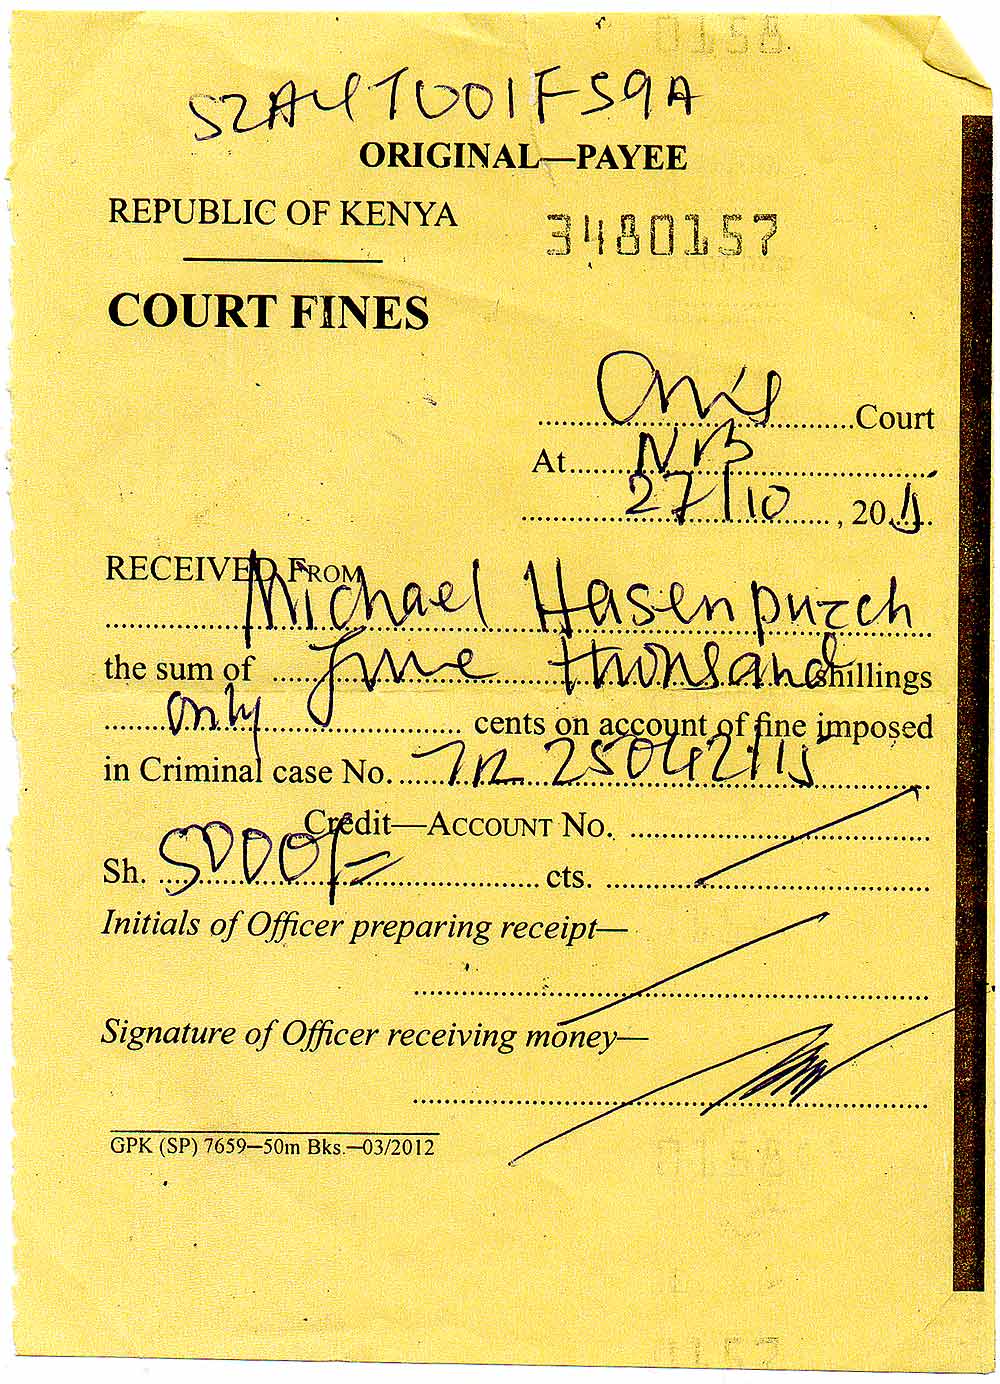 S2A4T001FS9A
ORIGINAL—PAYEE
REPUBLIC OF KENYA
3480157
COURT FINES
Court
At NRB
27/10, 201
RECEIVED FROM
Michael Hasenpusch
the sum of five thousand shillings
only cents on account of fine imposed
in Criminal case No. TR 25042/15
Credit—ACCOUNT No.
Sh. 5000/= cts.
Initials of Officer preparing receipt—
Signature of Officer receiving money—
GPK (SP) 7659—50m Bks.—03/2012